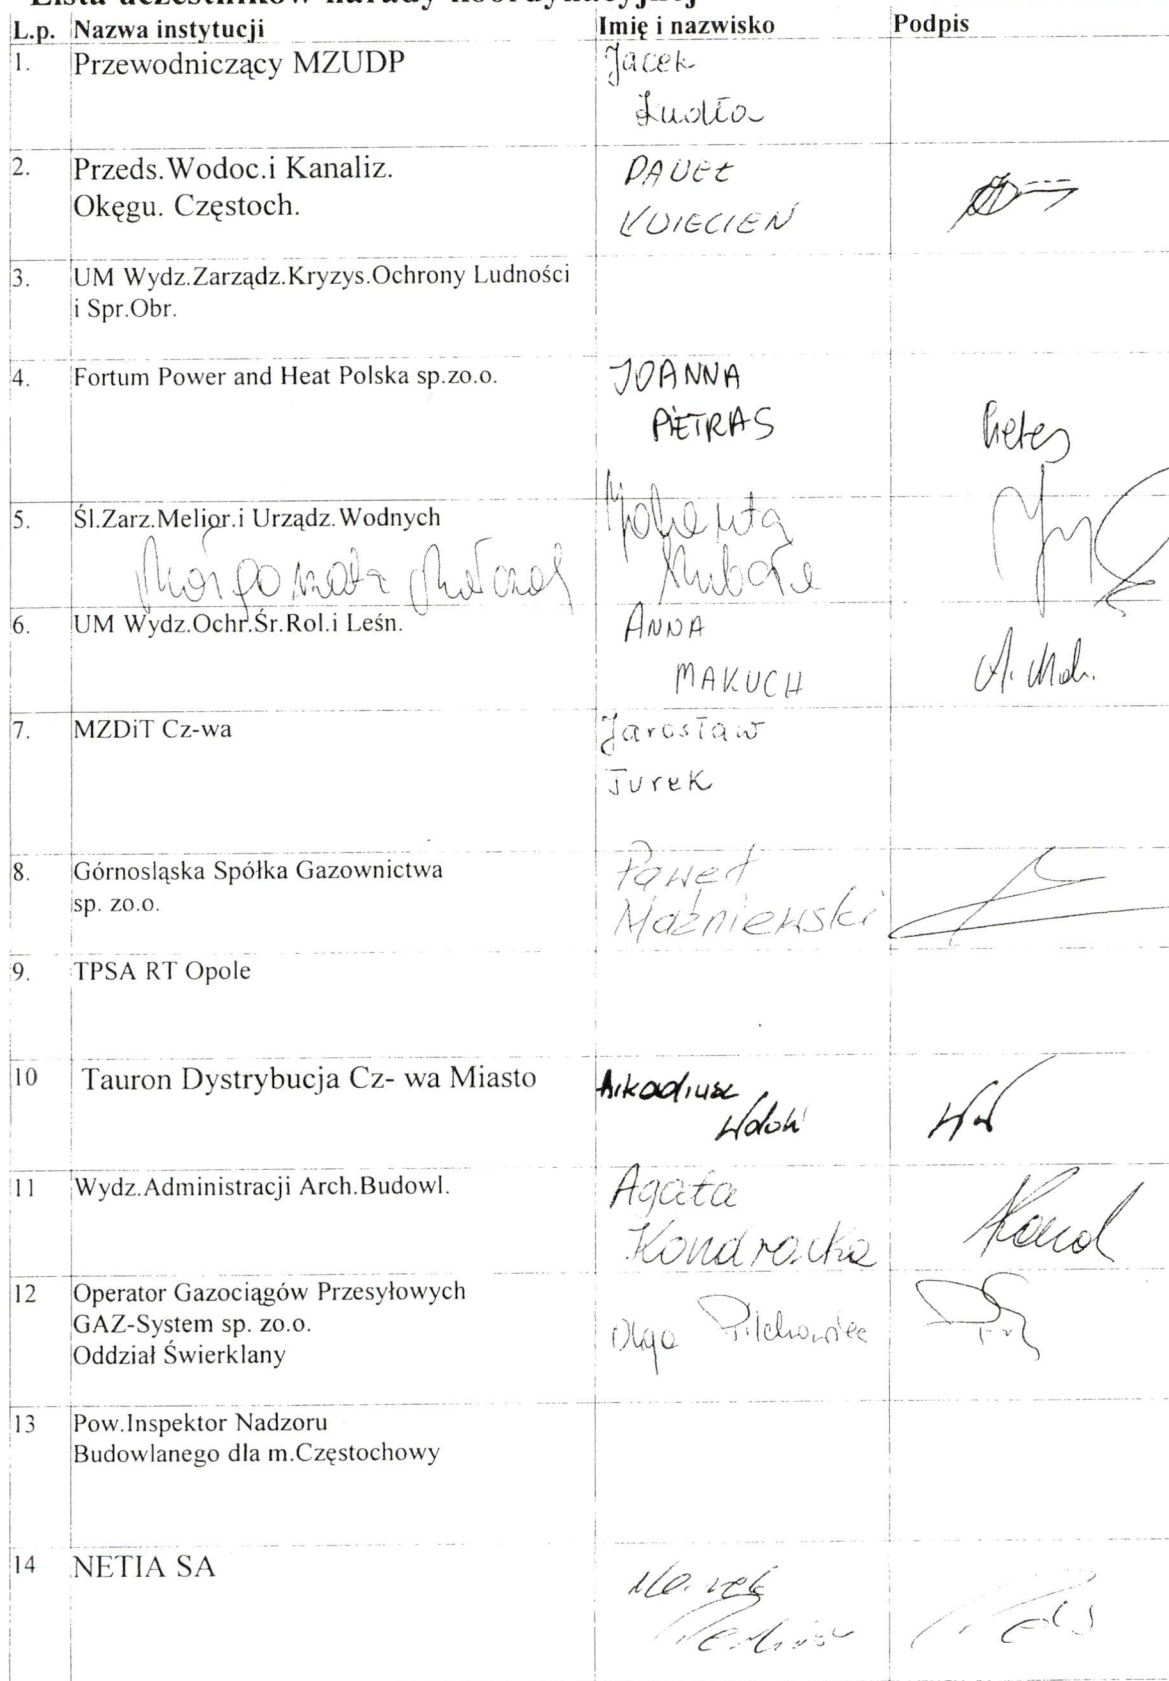 Lista uczestników narady koordynacyjnej
L.p. Nazwa instytucji Imię i nazwisko Podpis
1. Przewodniczący MZUDP Jacek
2. Przeds.Wodoc.i Kanaliz. PAWEŁ
Okęgu. Częstoch. KWIECIEŃ
3. UM Wydz.Zarządz.Kryzys.Ochrony Ludności
i Spr.Obr.
4. Fortum Power and Heat Polska sp.zo.o. JOANNA
PIETRAS
5. Śl.Zarz.Melior.i Urządz.Wodnych Jolanta
Małgorzata
6. UM Wydz.Ochr.Śr.Rol.i Leśn. ANNA
MAKUCH A. Mak.
7. MZDiT Cz-wa Jarosław
Jurek
8. Górnosląska Spółka Gazownictwa Paweł
sp. zo.o. Maźniewski
9. TPSA RT Opole
10 Tauron Dystrybucja Cz- wa Miasto Arkadiusz
11 Wydz.Administracji Arch.Budowl. Agata
Kondracka
12 Operator Gazociągów Przesyłowych
GAZ-System sp. zo.o. Olga Pilchowiec
Oddział Świerklany
13 Pow.Inspektor Nadzoru
Budowlanego dla m.Częstochowy
14 NETIA SA Marek